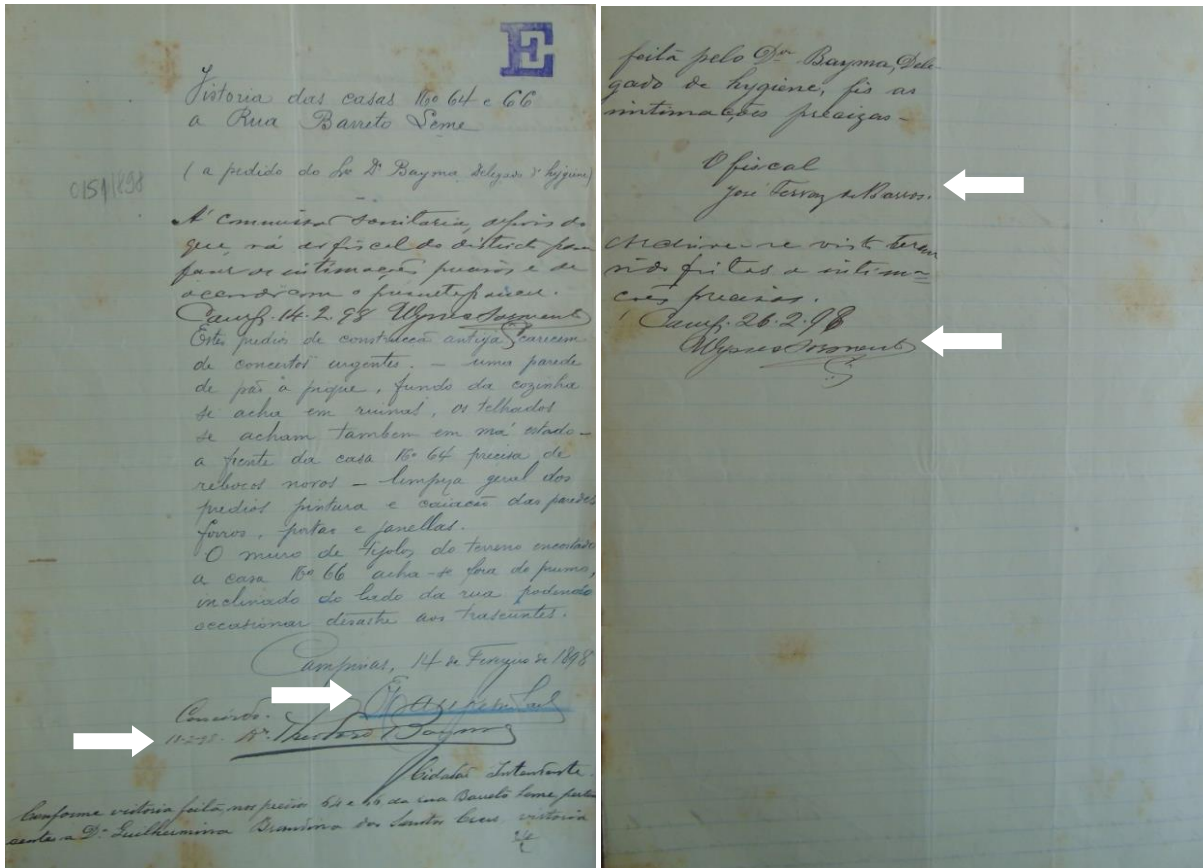 E
Vistoria das casas Nº 64 e 66
a Rua Barreto Leme
(a pedido do Dr Bayma Delegado d' hygiene)
0159/898
A' commissão Sanitaria, depois do
que, vá ao fiscal do districto para
fazer as intimações precisas e de
accordo com o presente parecer.
Camp. 14.2.98 Ulysses Sarmento
Estes predios de construcção antiga carecem
de concertos urgentes. — uma parede
de páo à pique, fundo da cozinha
se acha em ruinas, os telhados
se acham tambem em má estado —
a frente da casa Nº 64 precisa de
rebocos novos — limpeza geral dos
predios pintura e caiacão das paredes
forros, portas e janellas.
O muro de tijolos do terreno encostado
a casa Nº 66 acha-se fora do prumo,
inclinado do lado da rua podendo
occasionar desastre aos trascuntes.
Campinas, 14 de Fevereiro de 1898
Concordo.
Dr. Theodoro Bayma
Cidadão Intendente
Conforme vistoria feita nos predios 64 e 66 da rua Barreto Leme, perten
cente a Dª Guilhermina Brandina dos Santos Cruz, vistoria
feita pelo Dor Bayma, Dele-
gado de hygiene, fis as
intimações precizas —
O fiscal
José Ferraz de Barros.
Archive-se visto terem
sido feitas a intima=
ções precisas.
Camp. 26.2.98
Ulysses Sarmento